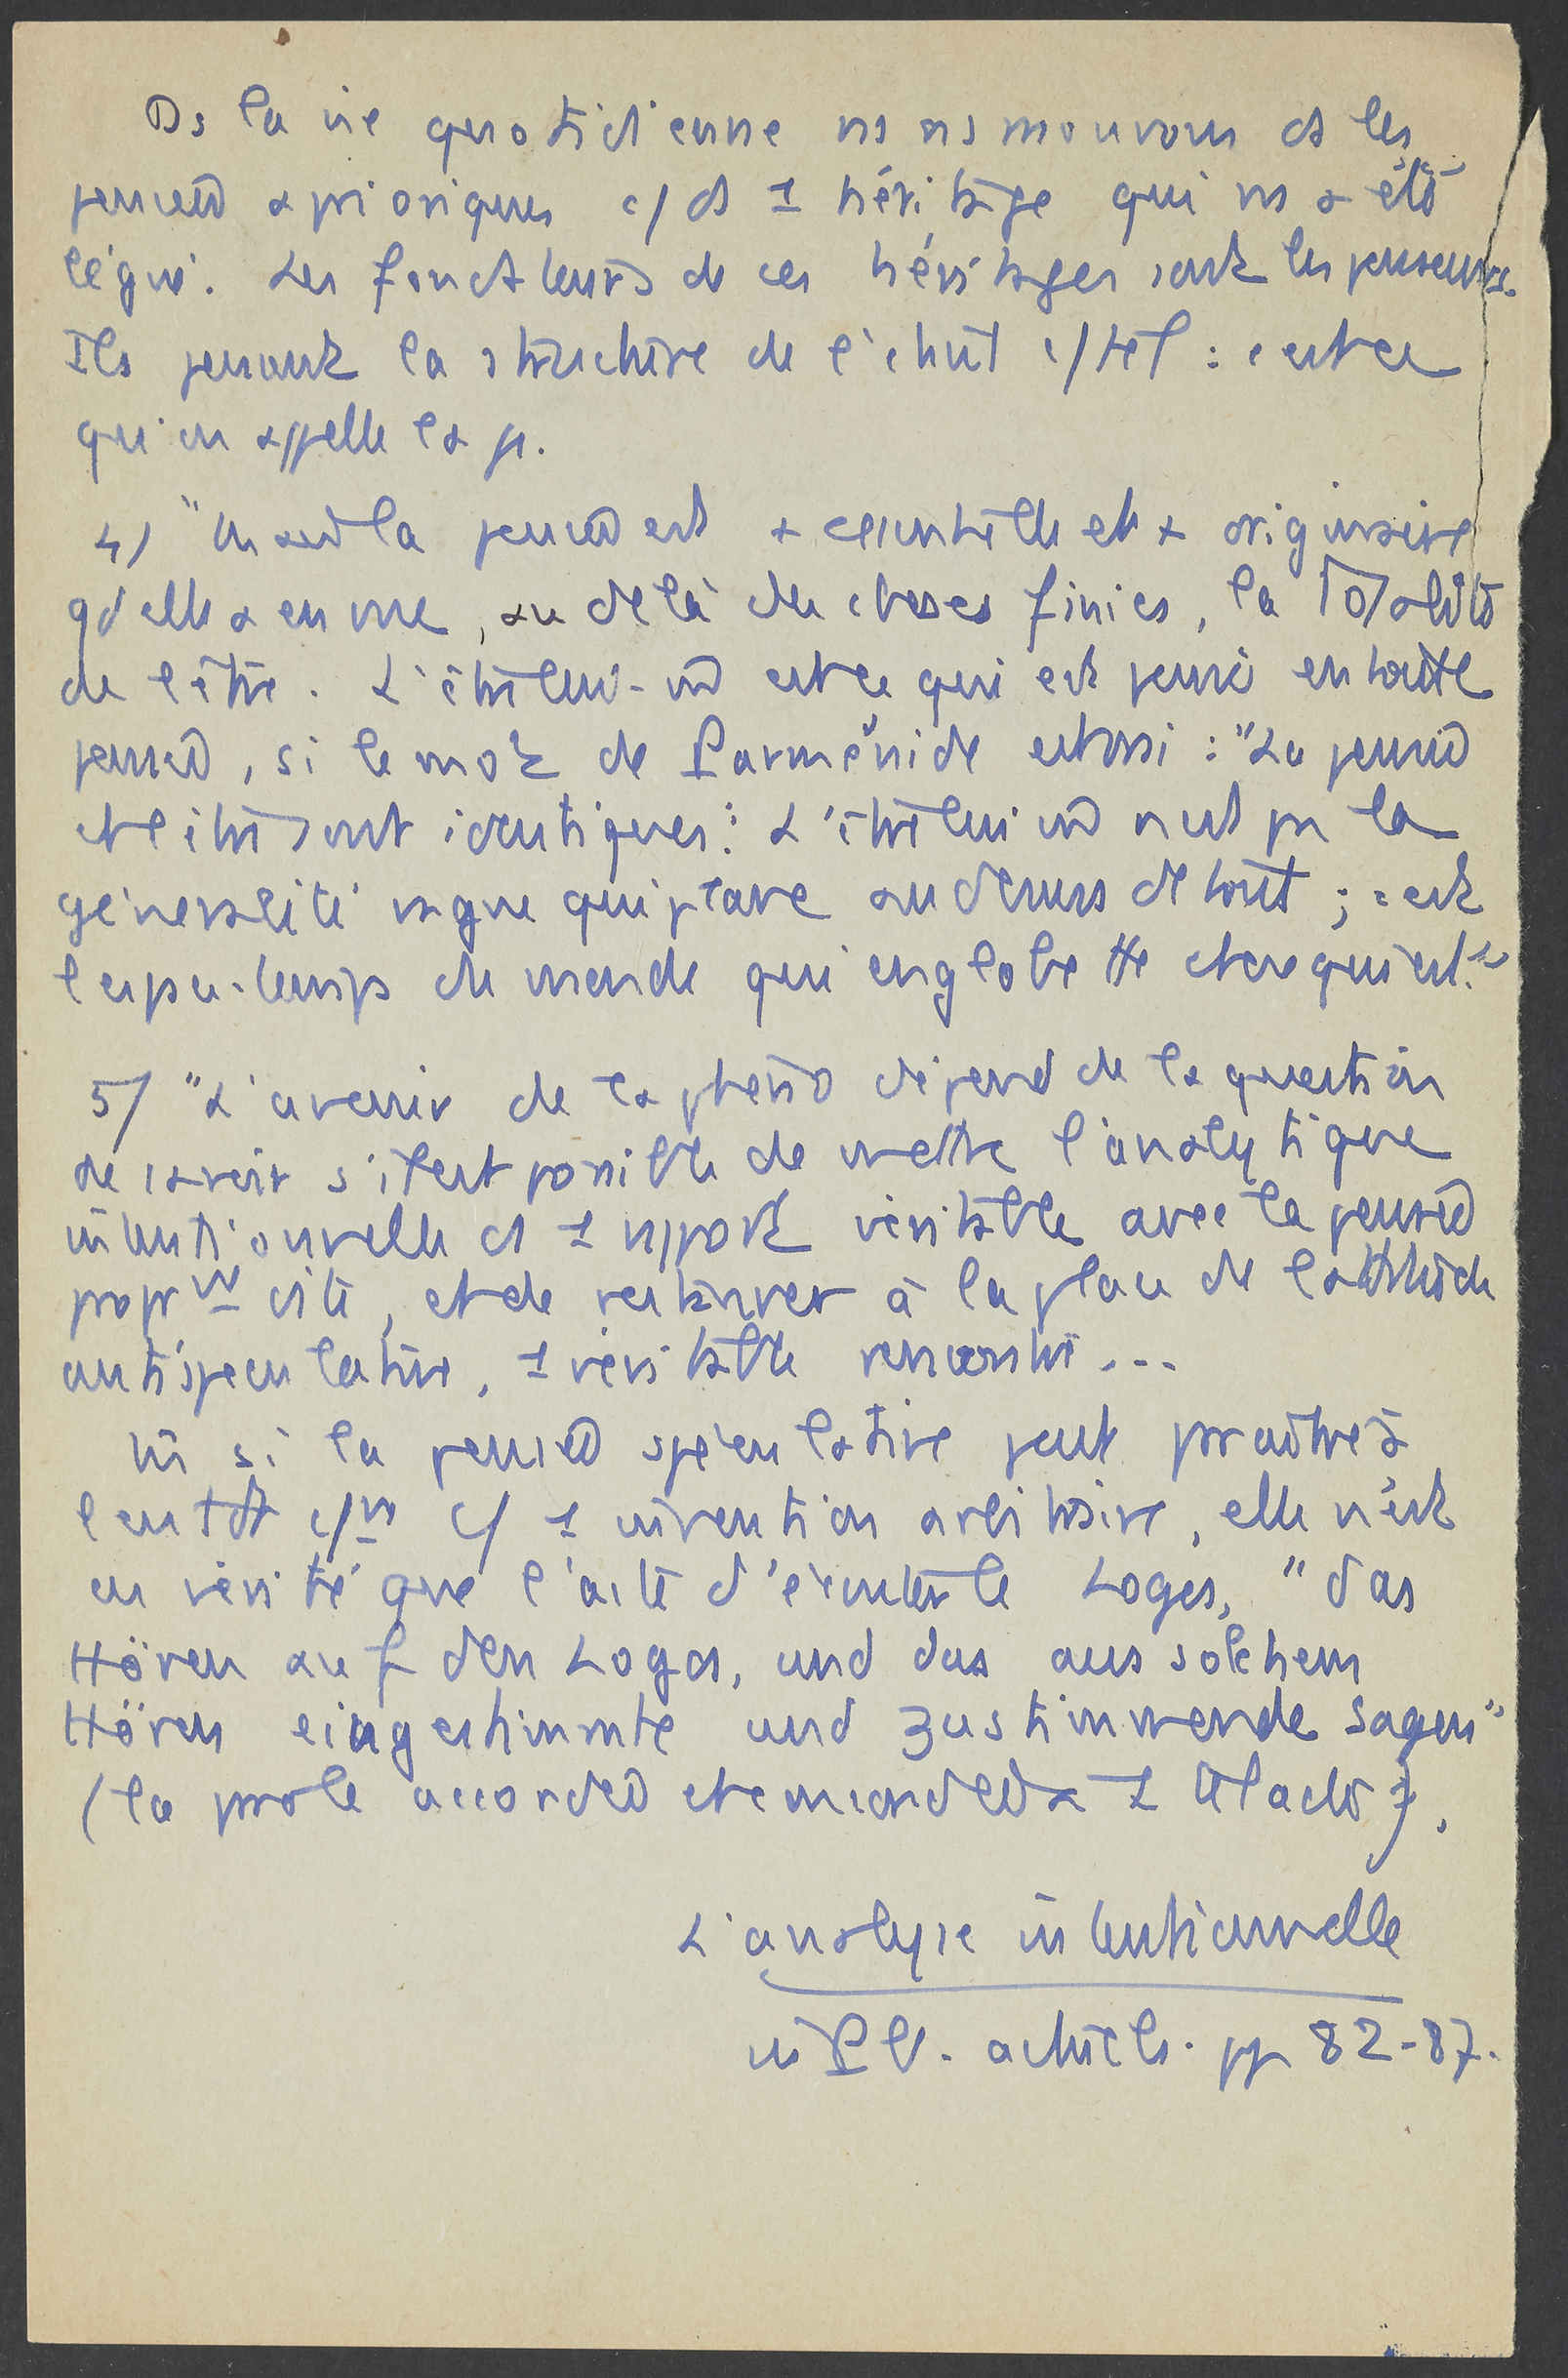 Ds la vie quotidienne ns ns mouvons ds les
pensées aprioriques c/ ds 1 héritage qui ns a été
légué. Les fondateurs de ces héritages sont les penseurs.
Ils pensent la structure de l'étant c/ tel : c'est ce
qu'on appelle la p.
4/ "la pensée est + essentielle et + originaire
qd elle a en vue, au delà des choses finies, la Totalité
de l'être. L'être lui-m est ce qui est pensé en toute
pensée, si le mot de Parménide est vrai : "La pensée
et l'être sont identiques". L'être lui m n'est pas la
généralité vague qui plane au dessus de tout ; c'est
l'espace-temps du monde qui englobe tte chose qui est."
5/ "L'avenir de la phéno dépend de la question
de savoir s'il est possible de mettre l'analytique
intentionnelle ds 1 rapport véritable avec la pensée
, et de restaurer à la place de l'attitude
antispéculative, 1 véritable rencontre...
M si la pensée spéculative peut paraître à
l'entdt c/n c/ 1 invention arbitraire, elle n'est
en vérité que l'acte d'écouter le Logos, "das
Hören auf den Logos, und das aus solchem
Hören eingestimmte und zustimmende Sagen"
(la parole accordée et 1 ).
L'analyse intentionnelle
in Pb. actuels. pp 82-87.